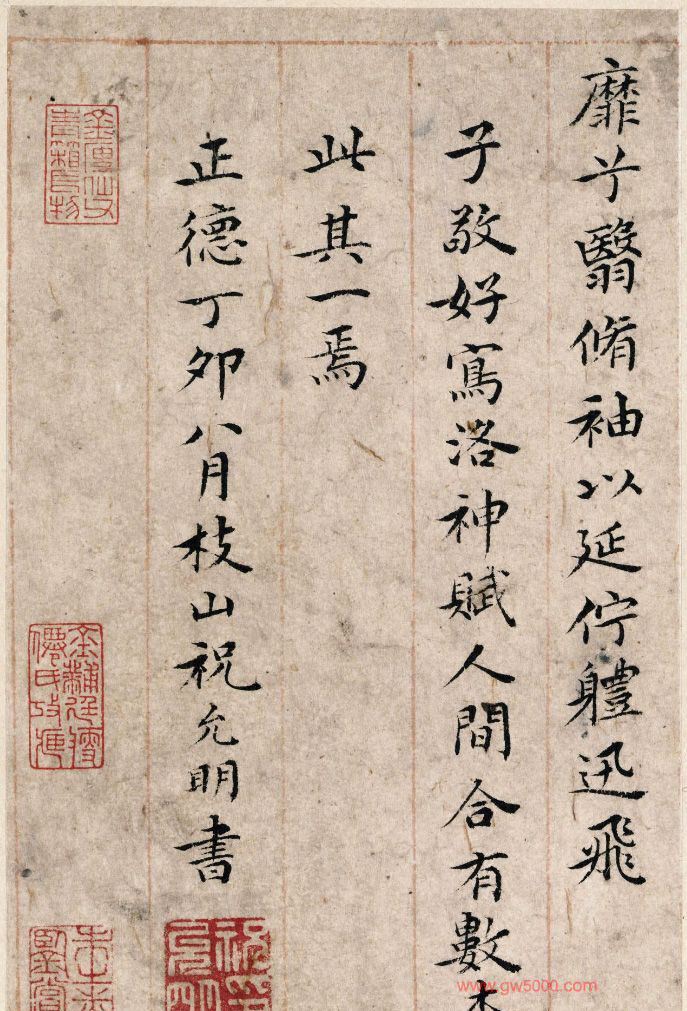 靡兮翳脩袖以延佇體迅飛
子敬好寫洛神賦人間合有數本
此其一焉
正德丁卯八月枝山祝允明書
www.gw5000.com